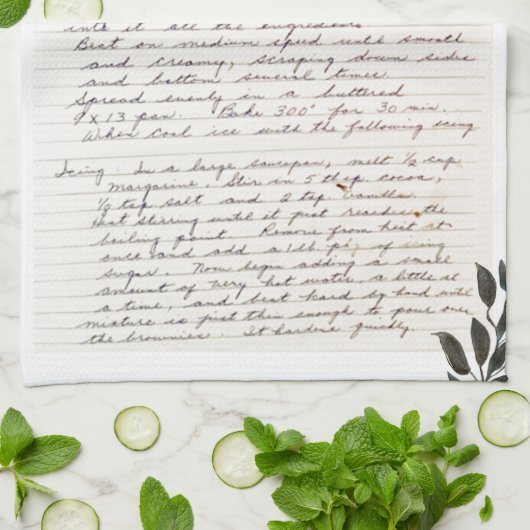 into it all the ingredients
Beat on medium speed until smooth
and creamy, scraping down sides
and bottom several times
Spread evenly in a buttered
9 x 13 pan. Bake 300° for 30 min.
When cool ice with the following icing
Icing. In a large saucepan, melt 1/2 cup
margarine. Stir in 5 tbsp. cocoa,
1/2 tsp salt and 2 tsp. vanilla.
Heat stirring until it just reaches the
boiling point. Remove from heat at
once and add a 1 lb pkg of icing
sugar. Now begin adding a small
amount of very hot water, a little at
a time, and beat hard by hand until
mixture is just thin enough to pour over
the brownies. It hardens quickly.